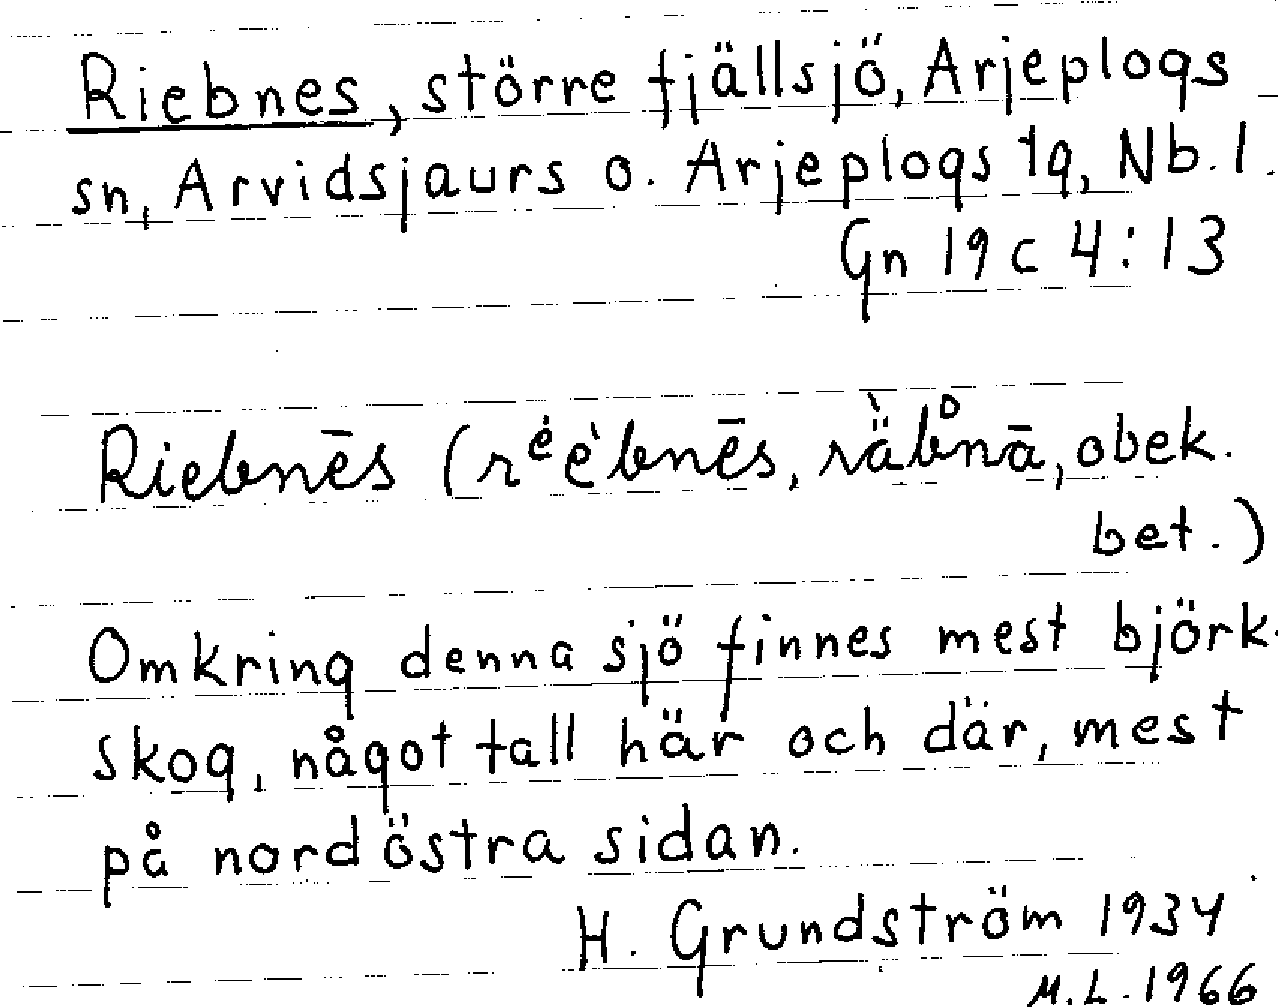 Riebnes, större fjällsjö, Arjeplogs
sn, Arvidsjaurs o. Arjeplogs tg, Nb. l.
Gn 19 c 4:13
Riebnēs (r é è bnēs, rä̀bnā, obek.
bet.)
Omkring denna sjö finnes mest björk-
skog, något tall här och där, mest
på nordöstra sidan.
H. Grundström 1934
M.L. 1966